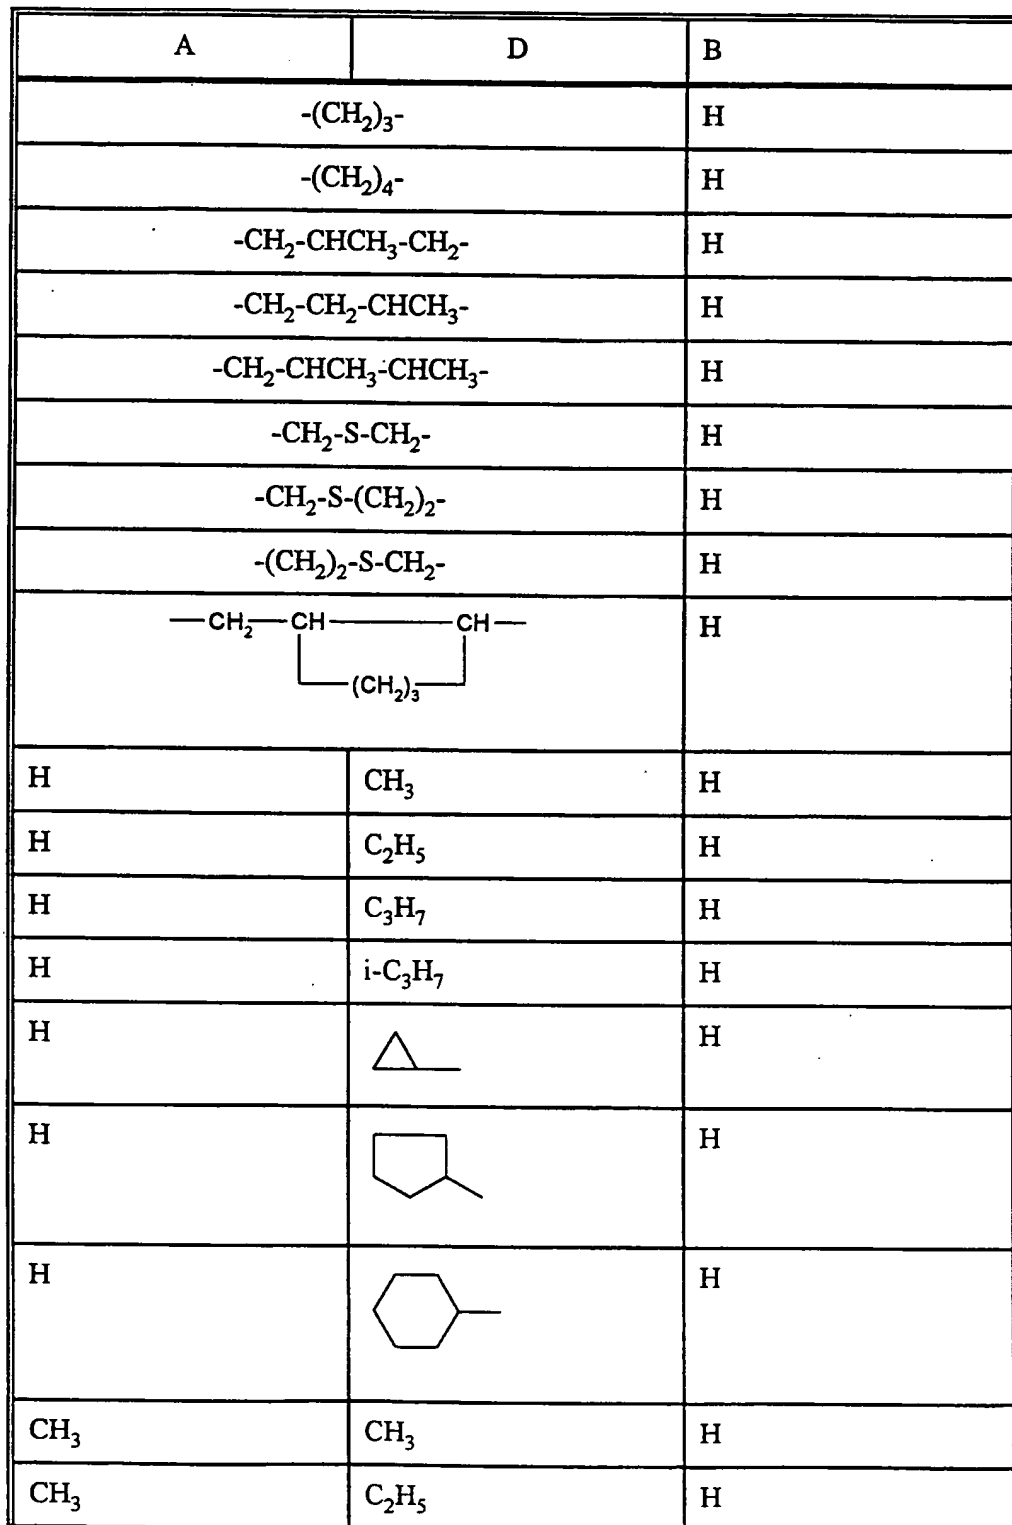 A D B
-(CH₂)₃- H
-(CH₂)₄- H
-CH₂-CHCH₃-CH₂- H
-CH₂-CH₂-CHCH₃- H
-CH₂-CHCH₃-CHCH₃- H
-CH₂-S-CH₂- H
-CH₂-S-(CH₂)₂- H
-(CH₂)₂-S-CH₂- H
—CH₂—CH———CH— H
(CH₂)₃
H CH₃ H
H C₂H₅ H
H C₃H₇ H
H i-C₃H₇ H
H H
H H
H H
CH₃ CH₃ H
CH₃ C₂H₅ H